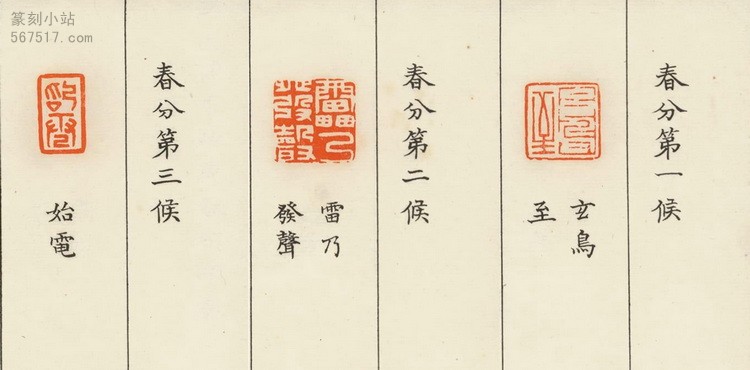 篆刻小站
567517.com
春分第一候
玄鳥
至
春分第二候
雷乃
發聲
雷乃
發聲
春分第三候
始電
始電